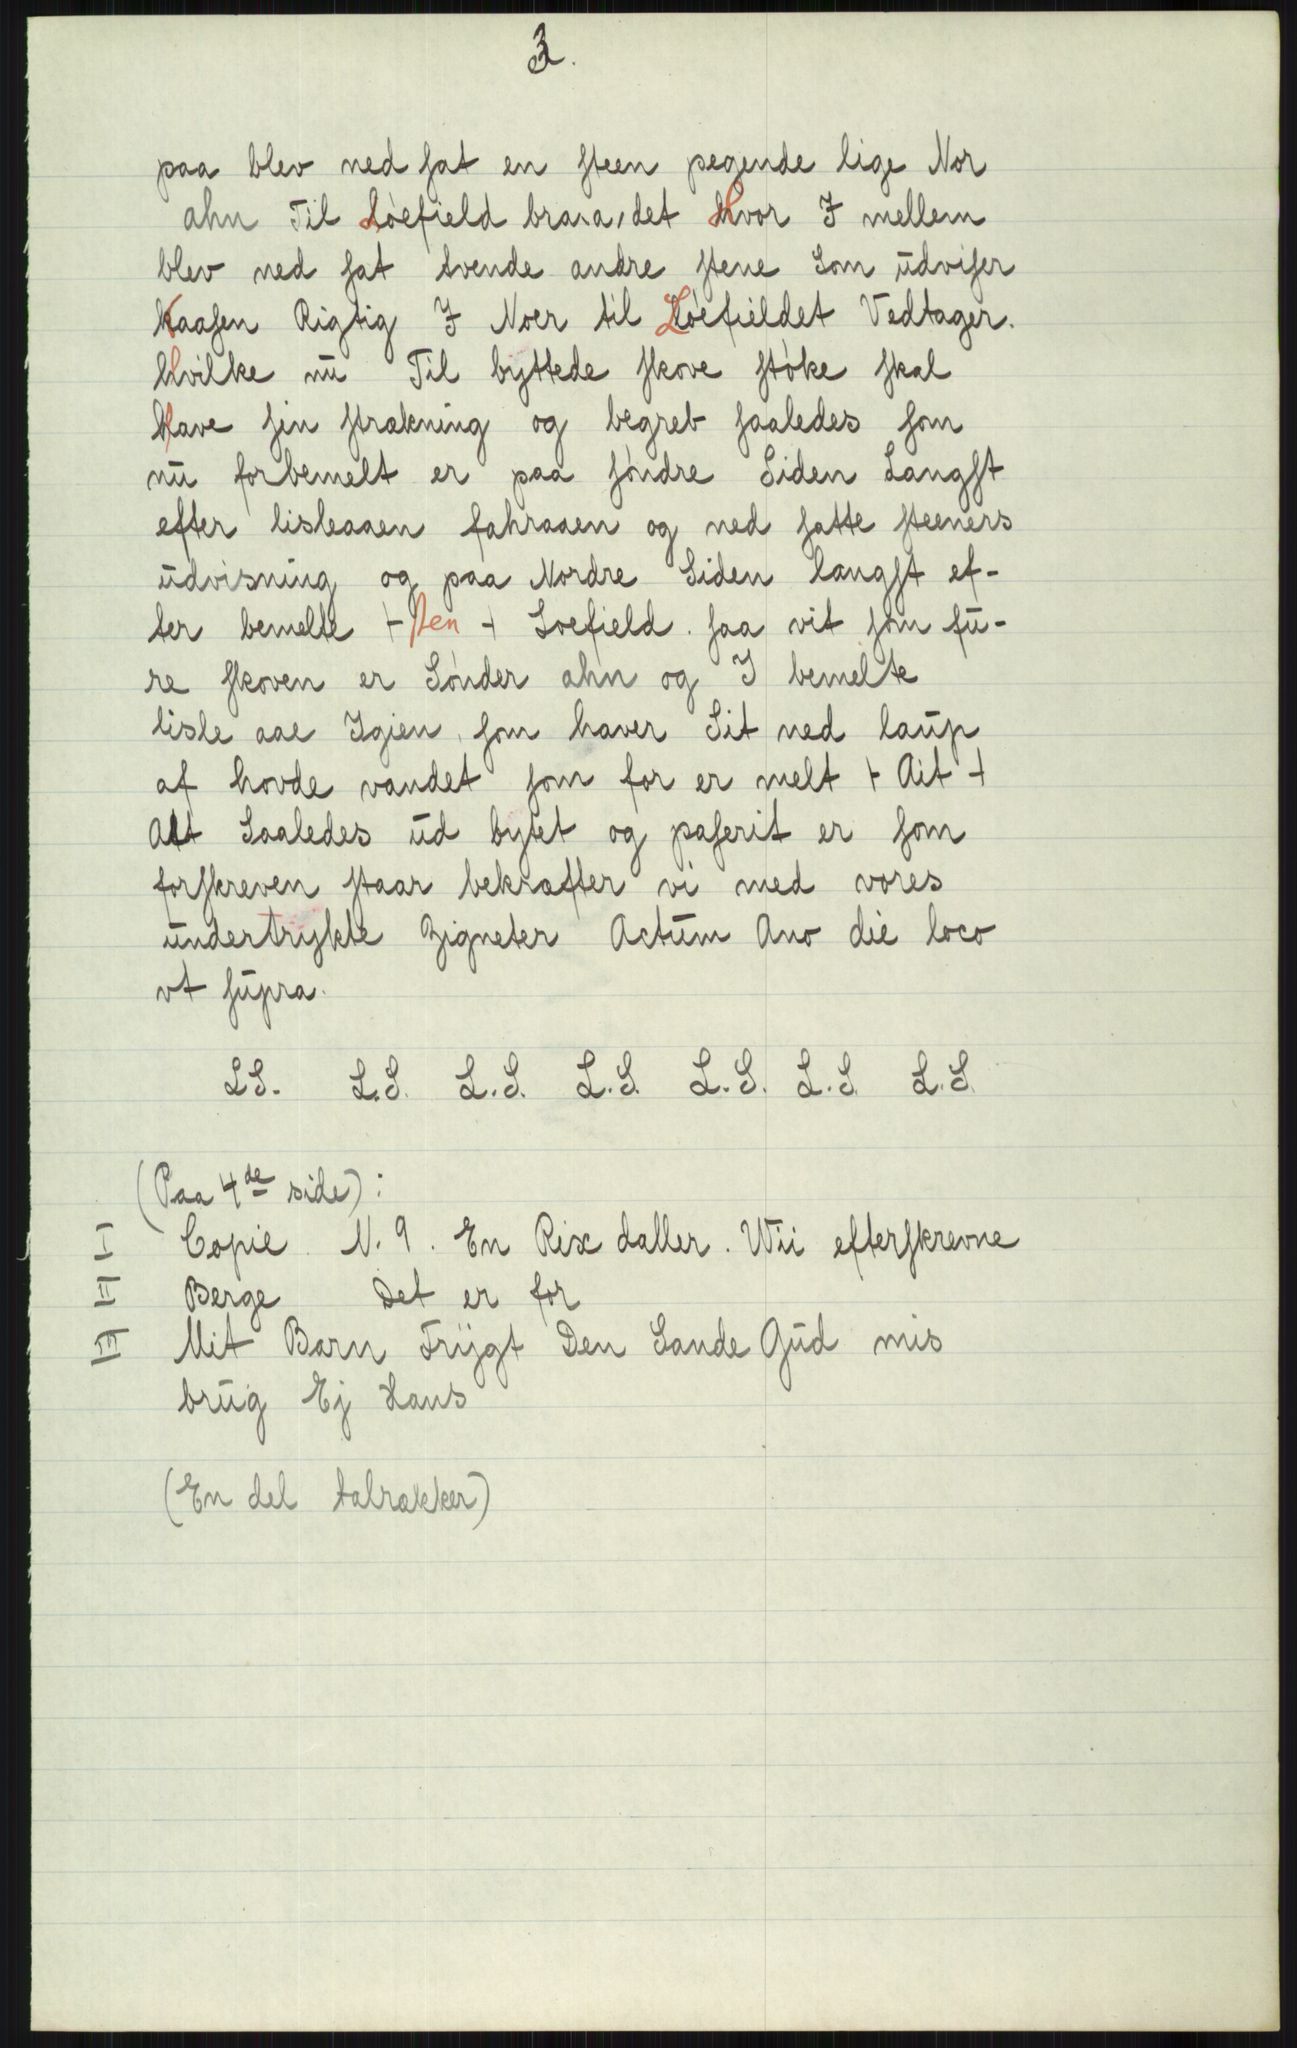 3.
paa blev ned sat en steen pegende lige Nor
ahn Til Löefield det Hvor I mellem
blev ned sat tvende andre stene Som udviser
kaasen Rigtig I Noer til Löefieldet Vedtager.
Hvilke nu Til byttede skove støke skal
have sin strækning og begreb saaledes som
nu forbemelt er paa söndre Siden Langst
efter lisleaaen fahraaen og ned satte steeners
udvisning og paa Nordre Siden langst ef-
ter bemelte + sten + Soefield. saa vit som fu-
re skoven er Sönder ahn og I bemelte
lisle aae Igien som haver Sit ned laup
af hovde vandet som for er melt + Ait +
Alt Saaledes ud bytet og paserit er som
forskreven staar bekræfter vi med vores
undertrykte Zigneter Actum Ano die loco
vt supra.
LS. L.S. L.S. L.S. L.S. L.S. L.S.
(Paa 4de side):
I Copie N. 9. En Rix daller. Wii efterskrevne
II Berge Det er for
III Mit Barn Frygt Den Sande Gud mis
brug Ej Hans
(En del talrækker)